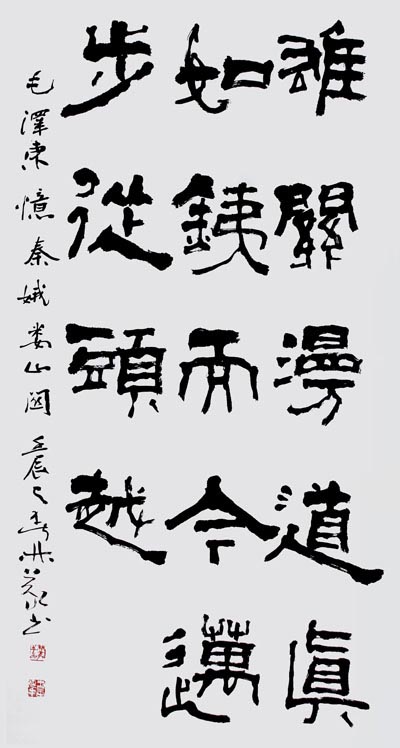 雄關漫道真
如鐵而今邁
步從頭越
毛澤東憶秦娥娄山関 壬辰之春